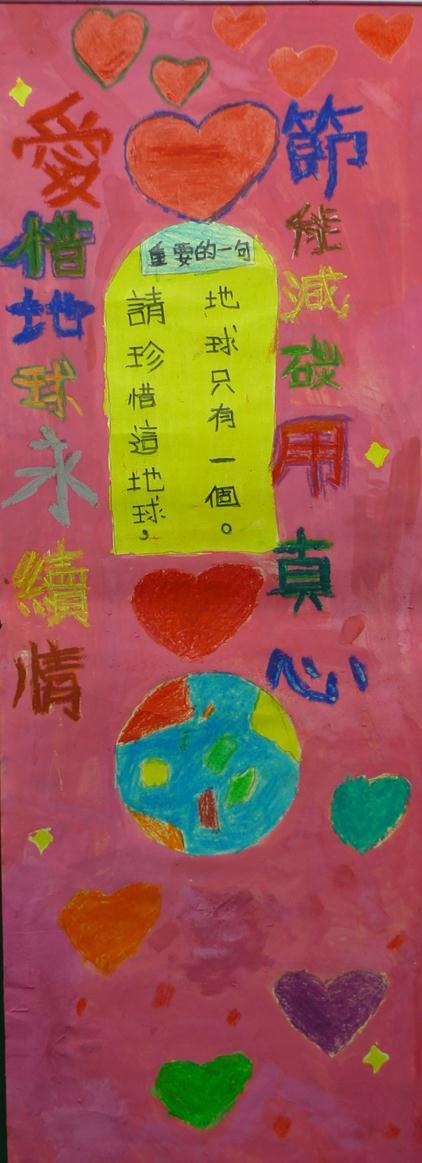 節能減碳用真心
愛惜地球永續情
重要的一句
請珍惜這地球，
地球只有一個。